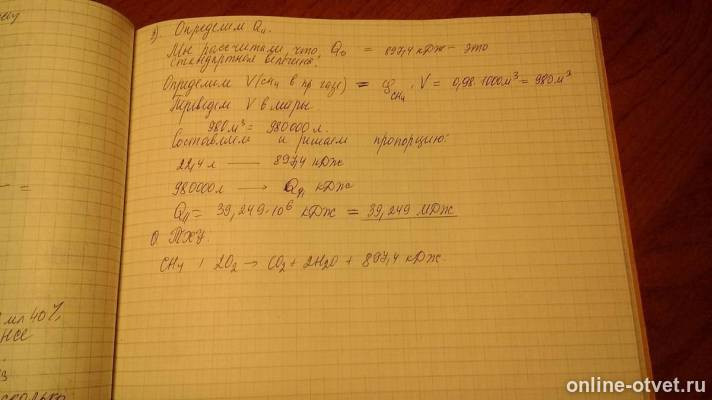 3) Определим Qп.
Мы рассчитали, что Q0 = 897,4 кДж - это
стандартная величина.
Определим V(CH4 в пр. газе) = φCH4 · V = 0,98 · 1000 м³ = 980 м³
Переведем V в литры.
980 м³ = 980000 л.
Составляем и решаем пропорцию:
22,4 л — 897,4 кДж
980000 л — Qп кДж
Qп = 39,249·10⁶ кДж = 39,249 МДж
О. ТХУ:
CH4 + 2O2 → CO2 + 2H2O + 897,4 кДж.
=
мл 40%
online-otvet.ru